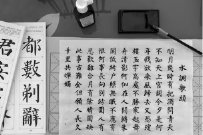 水調歌頭
明月幾時有把酒問青天
不知天上宮闕今夕是何
年我欲乘風歸去又恐瓊
樓玉宇高處不勝寒起舞
弄清影何似在人間轉朱
閣低綺戶照無眠不應有
恨何事長向別時圓人有
悲歡離合月有陰晴圓缺
此事古難全但願人長久
千里共嬋娟
都數
君